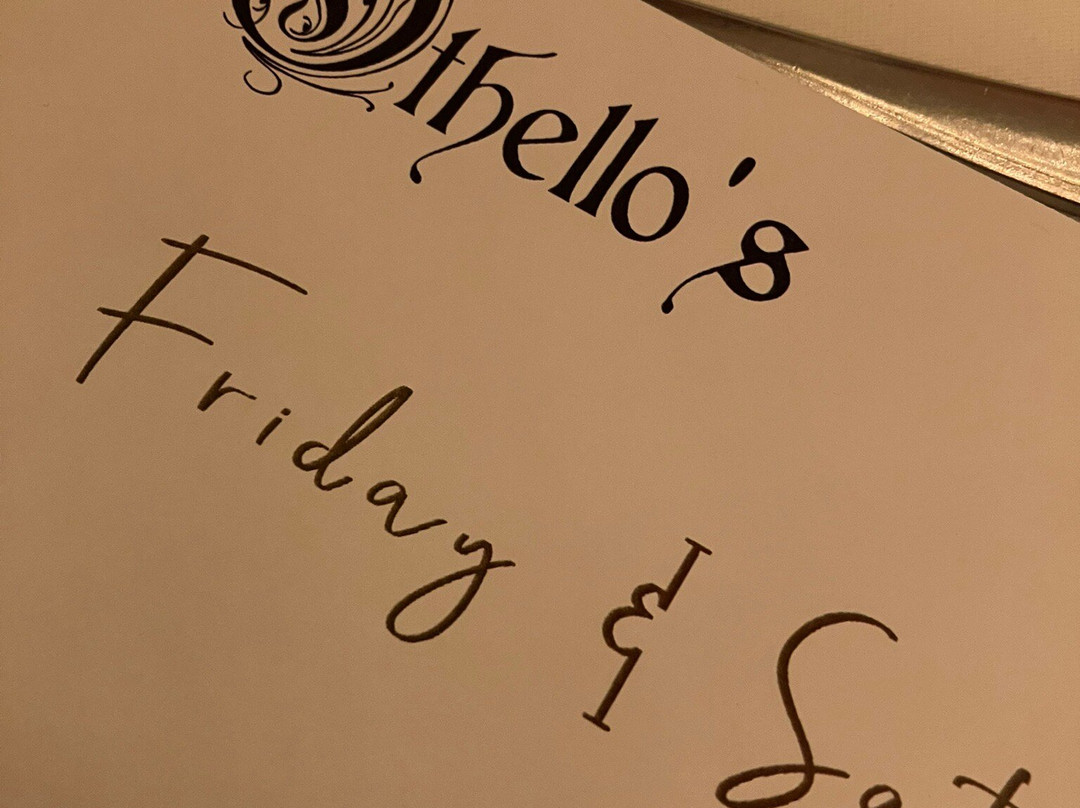 Othello's
Friday & Sat